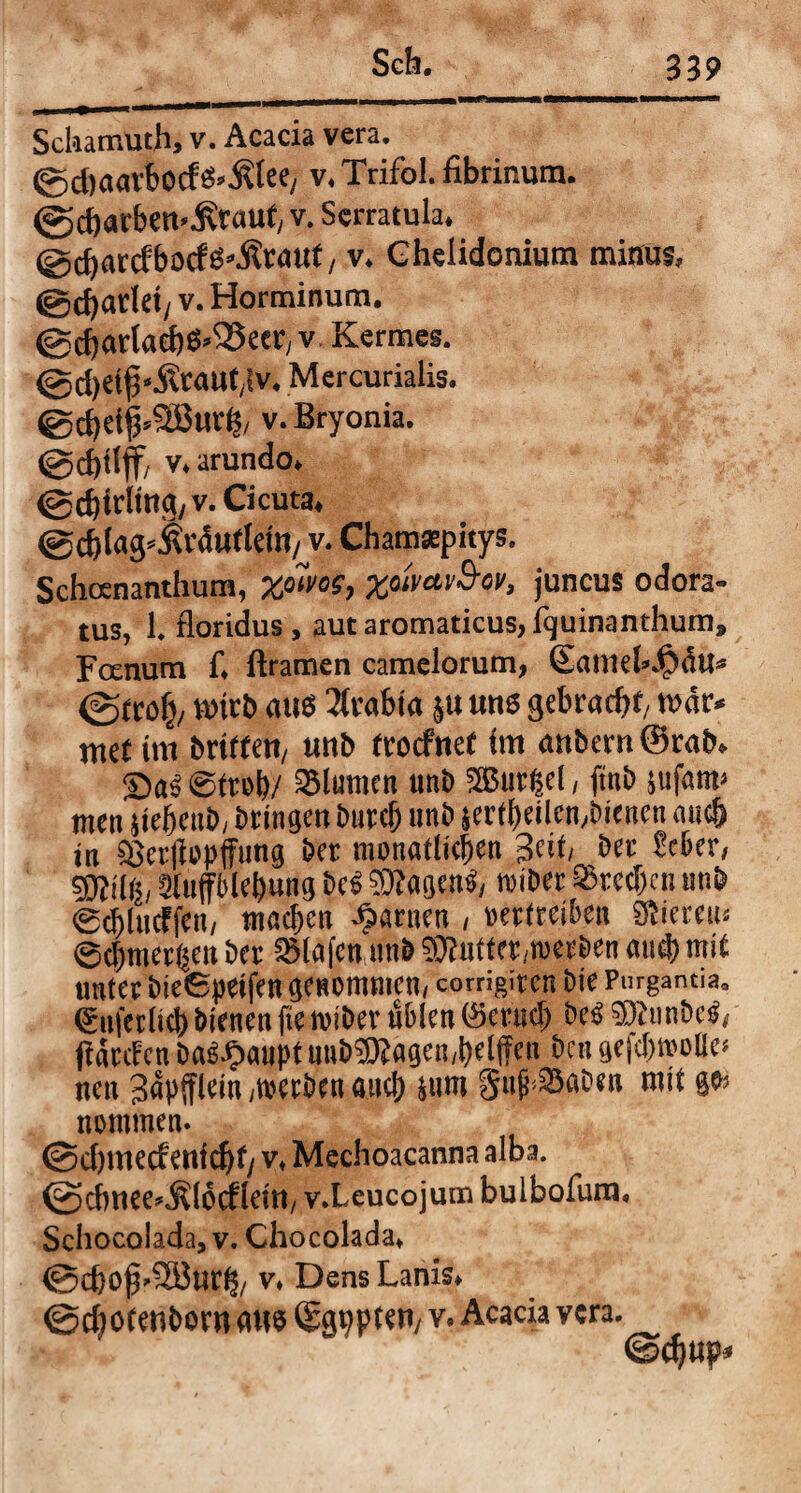 Sch. 339
Schamuth, v. Acacia vera.
Schaarbocks-Klee, v. Trifol. fibrinum.
Scharben-Kraut, v. Serratula.
Scharckbocks-Kraut, v. Chelidonium minus.
Scharlei, v. Horminum.
Scharlachs-Beer, v Kermes.
Scheiß-Kraut, v. Mercurialis.
Scheiß-Wurtz, v. Bryonia.
Schilff, v. arundo.
Schirling, v. Cicuta.
Schlag-Kräutlein, v. Chamæpitys.
Schœnanthum, χοῖνος, χοίνανθον, juncus odora-
tus, l. floridus, aut aromaticus, squinanthum,
Fœnum s. stramen camelorum, Camel-Häu-
Stroh, wird aus Arabia zu uns gebracht, wär-
met im dritten, und trocknet im andern Grad.
Das Stroh/ Blumen und Wurtzel, sind zusam-
men ziehend, bringen durch und zertheilen, dienen auch
in Verstopffung der monatlichen Zeit, der Leber,
Miltz, Auffblehung des Magens, wider Brechen und
Schlucksen, machen Harnen, vertreiben Nieren-
Schmertzen der Blasen und Mutter, werden auch mit
unter die Speisen genommen, corrigiren die Purgantia.
Euserlich dienen sie wider üblen Geruch des Mundes,
stärcken das Haupt und Magen, helffen den geschwolle-
nen Zäpfflein, werden auch zum Fuß-Baden mit ge-
nommen.
Schmeckenicht, v. Mechoacanna alba.
Schnee-Klöcklein, v. Leucojum bulbosum.
Schocolada, v. Chocolada.
Schoß-Wurtz, v. Dens Lanis.
Schotendorn aus Egypten, v. Acacia vera.
Schup-